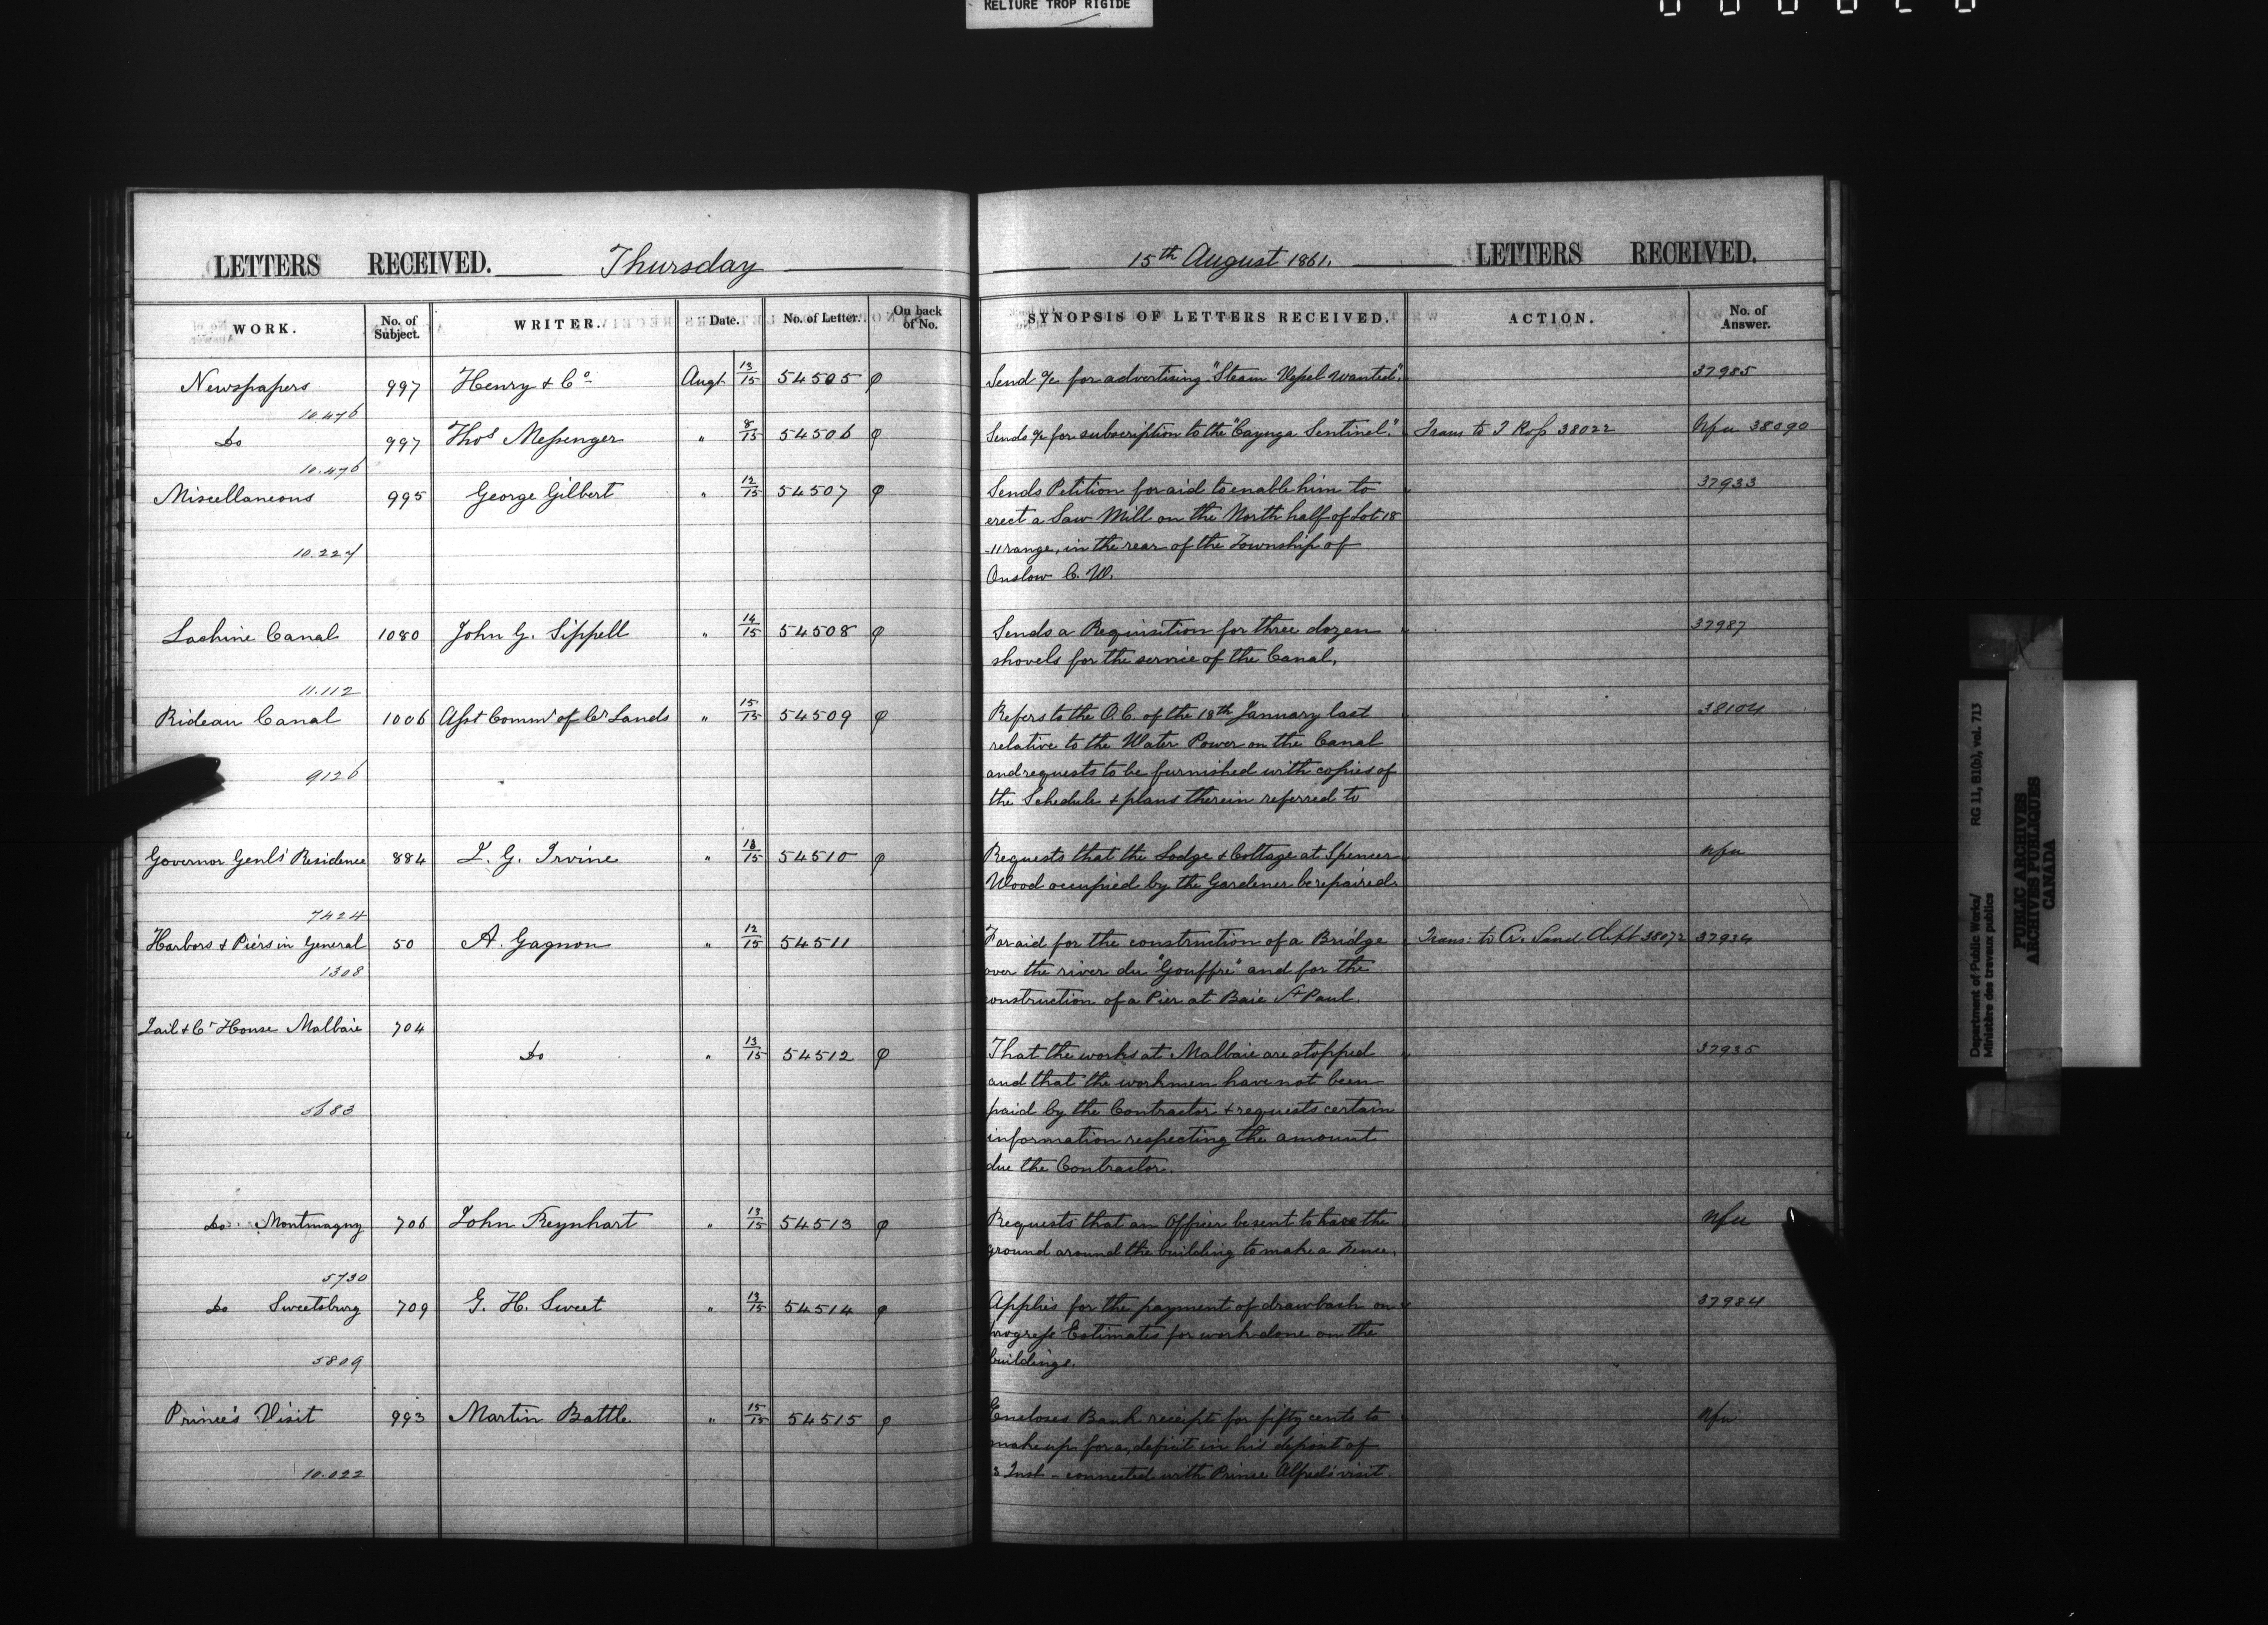 RELIURE TROP RIGIDE
LETTERS RECEIVED. Thursday
15th August 1861. LETTERS RECEIVED.
WORK. No. of Subject. WRITER. Date. No. of Letter. On back of No. SYNOPSIS OF LETTERS RECEIVED. ACTION. No. of Answer.
Newspapers 997 Henry & Co Augt 13/15 54505 φ Send a/c for advertising "Steam Vessel Wanted". 37985
10.476
Do 997 Thos Messenger " 8/15 54506 φ Sends a/c for subscription to the "Cayuga Sentinel". Trans to T Ross 38022 Nfu 38090
10.476
Miscellaneous 995 George Gilbert " 12/15 54507 φ Sends Petition for aid to enable him to 37933
erect a Saw Mill on the North half of Lot 18
10.227 11 range, in the rear of the Township of
Onslow C. W.
Lachine Canal 1080 John G. Sippell " 14/15 54508 φ Sends a Requisition for three dozen 37987
shovels for the service of the Canal,
11.112
Rideau Canal 1006 Asst Commr of Cr Lands " 15/15 54509 φ Refers to the O.C. of the 18th January last 38104
relative to the Water Power on the Canal
9126 and requests to be furnished with copies of
the Schedule & plans therein referred to
Governor Genls' Residence 884 L. G. Irvine " 13/15 54510 φ Requests that the Lodge & Cottage at Spencer Nfu
Wood occupied by the Gardener be repaired.
7424
Harbors & Piers in General 50 A. Gagnon " 12/15 54511 For aid for the construction of a Bridge Trans: to Cr. Land Dept 38072 37934
1308 over the river du "Gouffre" and for the
construction of a Pier at Baie St Paul.
Jail & Ct House Malbaie 704
Do " 13/15 54512 φ That the works at Malbaie are stopped 37935
and that the workmen have not been
5683 paid by the Contractor & requests certain
information respecting the amount
due the Contractor.
Do Montmagny 706 John Feynhart " 13/15 54513 φ Requests that an Officer be sent to trace the Nfu
ground around the building to make a Fence.
5730
Do Sweetsburg 709 G. H. Sweet " 13/15 54514 φ Applies for the payment of drawback on 37984
progress Estimates for work done on the
5809 buildings.
Prince's Visit 993 Martin Battle " 15/15 54515 φ Encloses Bank receipt for fifty cents to Nfu
make up for a deficit in his deposit of
10.022 8 Inst - connected with Prince Alfred's visit.
Department of Public Works/ RG 11, B1(b), vol. 713
Ministère des travaux publics
PUBLIC ARCHIVES
ARCHIVES PUBLIQUES
CANADA